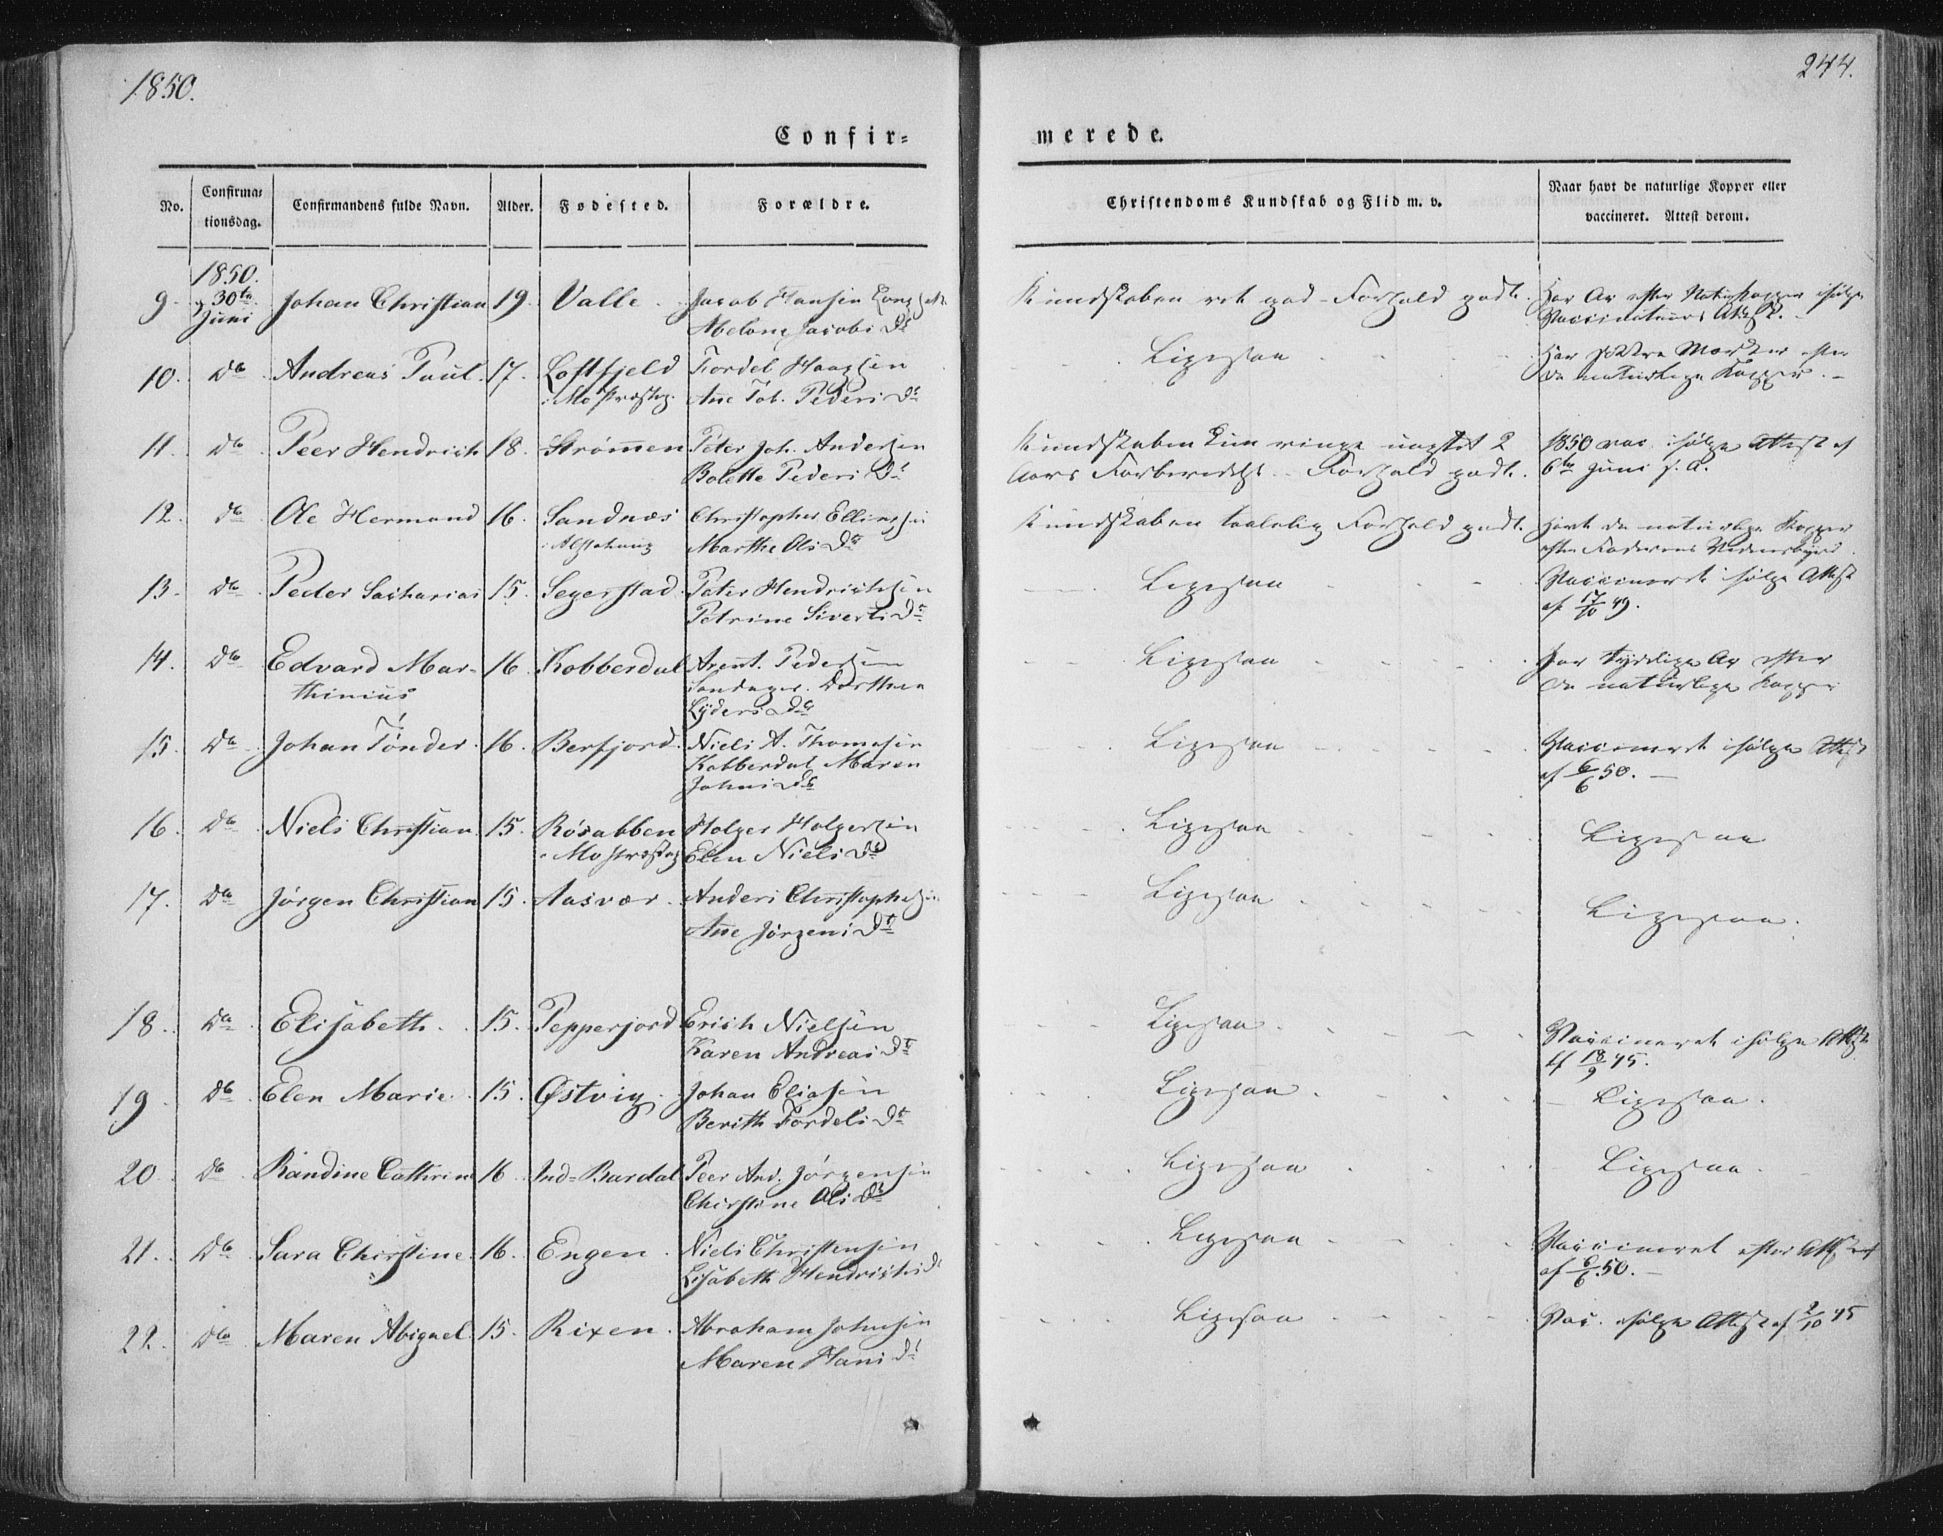 1850.
244.
Confir=
merede.
No.
Confirma=
tionsdag.
Confirmandens fulde Navn.
Alder.
Fødested.
Forældre.
Christendoms Kundskab og Flid m. v.
Naar havt de naturlige Kopper eller
vaccineret. Attest derom.
1850.
9. 30te Johan Christian 19. Valle. Jacob Hansen Kundskaben ret god - Forhold godt. Har Ar efter
Juni Jacobs Dr Attest.
10. Do Andreas Paul. 17. Loftfjeld Tordel Haagsen Ligesaa Har Mærker efter
Mo Præsteg. Ane Tob. Peders Dr de naturlige Kopper. -
11. do Peer Hendrich 18. Strømen Peter Joh. Andersen Kundskaben kun ringe uagtet 2 1850 vac. ifølge Attest af
Bolette Peders Dr Aars Forberedelse. - Forhold godt. 6te Juni s. A.
12. do Ole Hermand 16. Sandnæs Christopher Ellingsen Kundskaben taalelig Forhold godt. Havt de naturlige Kopper
Marthe Ols Dr efter Faderens
13. do Peder Sacharias 15. Segerstad. Peter Hendrichsen Ligesaa Vaccineret ifølge Attest
Petrine Siverts Dr af 17/10 49.
14. Do Edvard Mar- 16. Kobberdal Arent. Pedersen Ligesaa Har tydelige Ar efter
thinius Dorthea de naturlige Kopper
Lyders Dr
15. Do Johan Tønder. 16. Berfjord. Niels A. Thomesen Ligesaa Vaccineret ifølge Attest
Kobberdal Maren af 6/6 50. -
Johns Dr
16. Do Niels Christian 15. Røsabben Holger Holgersen Ligesaa Ligesaa
Mo Præsteg Elen Niels Dr
17. Do Jørgen Christian 15. Aasvær. Anders Christophersen Ligesaa Ligesaa.
Ane Jörgens Dr
18. Do Elisabeth. 15. Pepperjord Erich Nielsen Ligesaa Vaccineret ifølge Attest
Karen Andreas Dr af 18/9 45.
19. do Elen Marie. 15. Østvig. Johan Eliasen Ligesaa Ligesaa.
Berith Tordels Dr
20. Do Randine Cathrine 16 Ind=Bardal Peer And. Jörgensen Ligesaa Ligesaa.
Christine Ols Dr
21. Do Sara Christine. 16. Engen. Niels Christensen Ligesaa Vaccineret efter Attest
Lisabeth Hendrichs Dr af 6/6 50. -
22. Do Maren Abigael. 15. Rixen. Abraham Johnsen Ligesaa Vac. ifølge Attest af 2/10 45
Maren Hans Dr